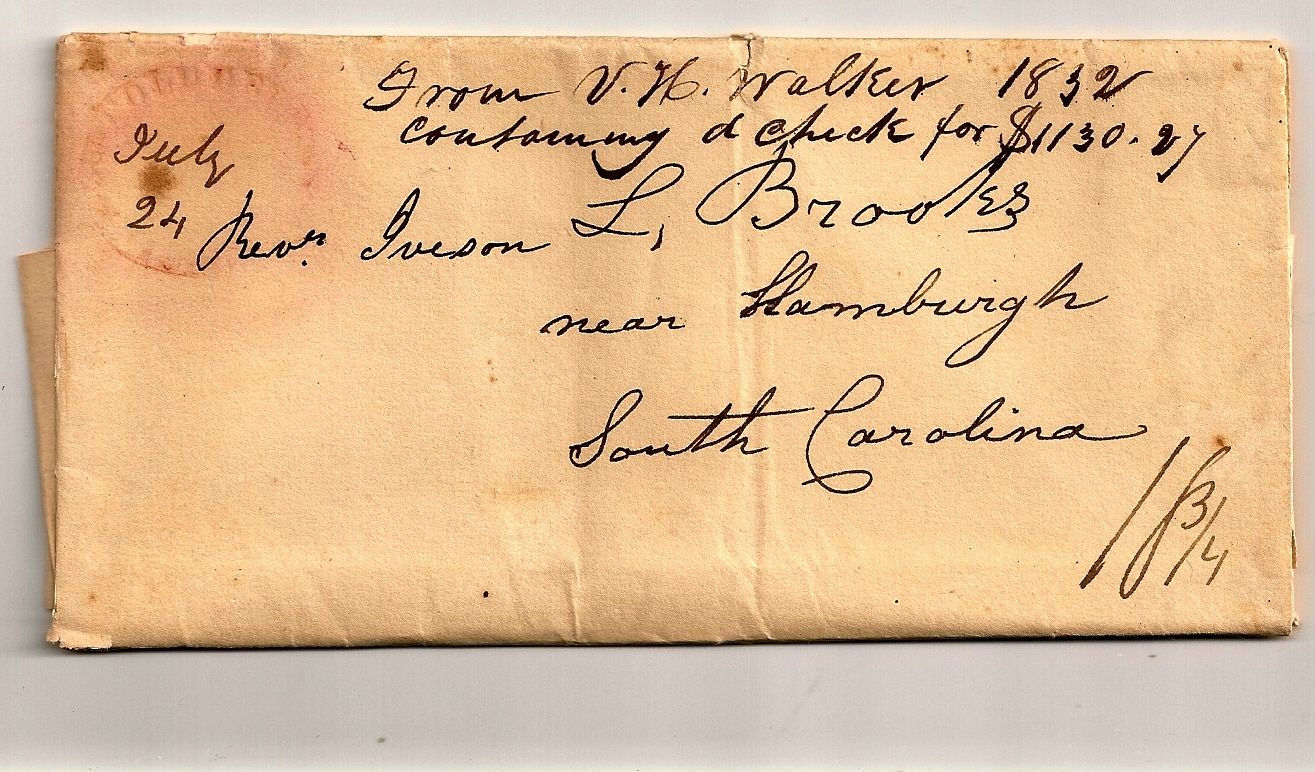 From V. H. Walker 1832
containing a check for $1130.27
July
24
Revr. Iveson L, Brooks
near Hamburgh
South Carolina
18 3/4